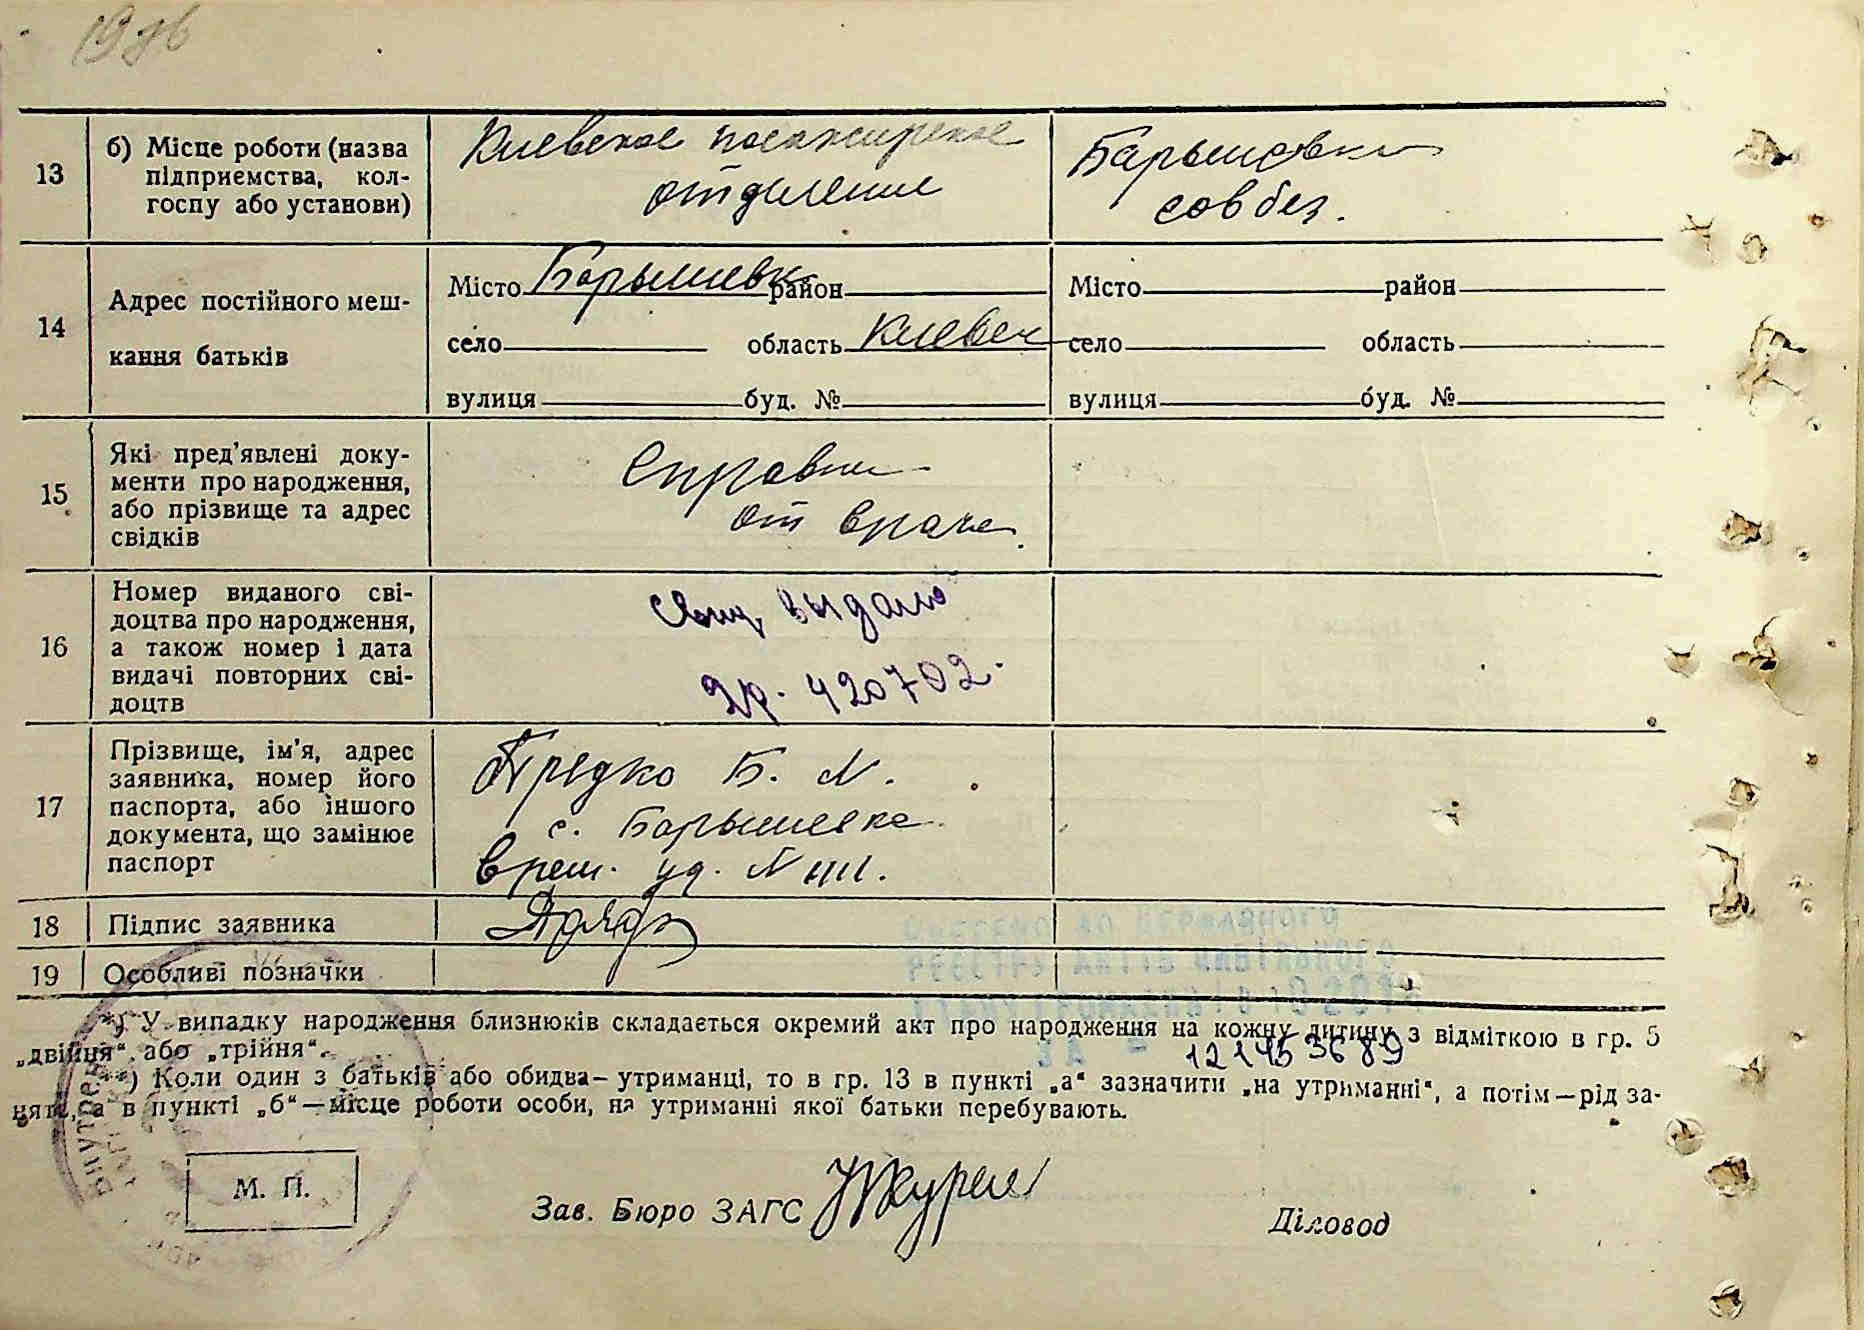 13
б) Місце роботи (назва
підприємства, кол-
госпу або установи)
Киевское пасажирское
отделение
Барышевка
собез.
14
Адрес постійного меш-
кання батьків
Місто Барышевка район
село область Киевск
вулиця буд. №
Місто район
село область
вулиця буд. №
15
Які пред'явлені доку-
менти про народження,
або прізвище та адрес
свідків
Справки
от врача.
16
Номер виданого сві-
доцтва про народження,
а також номер і дата
видачі повторних сві-
доцтв
выдано
420702.
17
Прізвище, ім'я, адрес
заявника, номер його
паспорта, або іншого
документа, що замінює
паспорт
Предко Б. М.
с. Барышевка
врем. уд. №
18
Підпис заявника
19
Особливі позначки
ВНЕСЕНО ДО ДЕРЖАВНОГО
РЕЄСТРУ АКТІВ ЦИВІЛЬНОГО
СТАНУ ГРОМАДЯН
ЗА - 121453689
*) У випадку народження близнюків складається окремий акт про народження на кожну дитину з відміткою в гр. 5
„двійня“ або „трійня“.
**) Коли один з батьків або обидва—утриманці, то в гр. 13 в пункті „а“ зазначити „на утриманні“, а потім—рід за-
няття, а в пункті „б“—місце роботи особи, на утриманні якої батьки перебувають.
М. П.
Зав. Бюро ЗАГС
Діловод